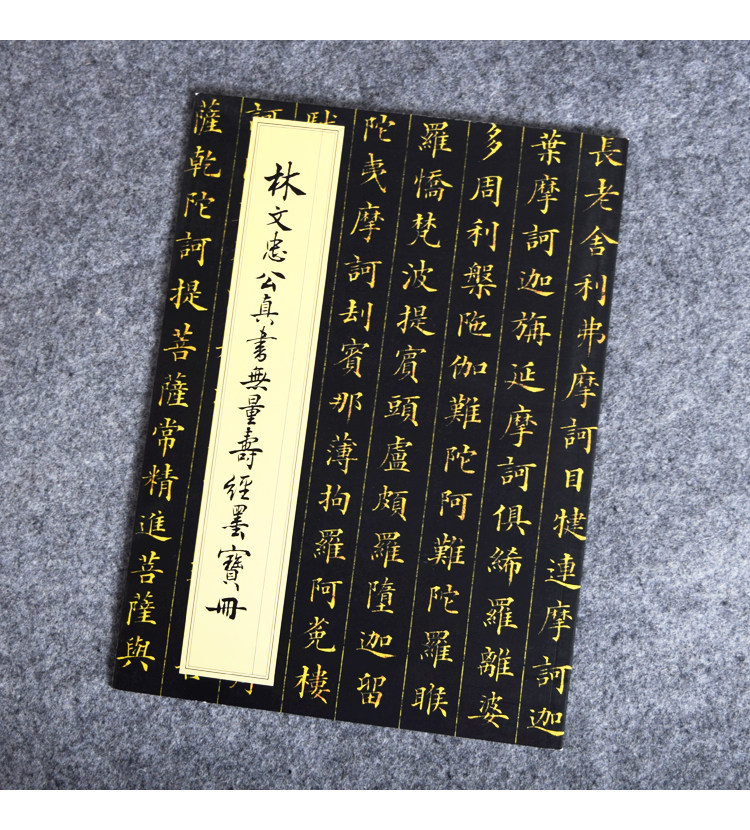 長老舍利弗摩訶目犍連摩訶迦
葉摩訶迦旃延摩訶俱絺羅離婆
多周利槃陁伽難陀阿難陀羅睺
羅憍梵波提賓頭盧頗羅墮迦留
陀夷摩訶刦賓那薄拘羅阿㝹樓
林文忠公真書無量壽經墨寶冊
薩乾陀訶提菩薩常精進菩薩與